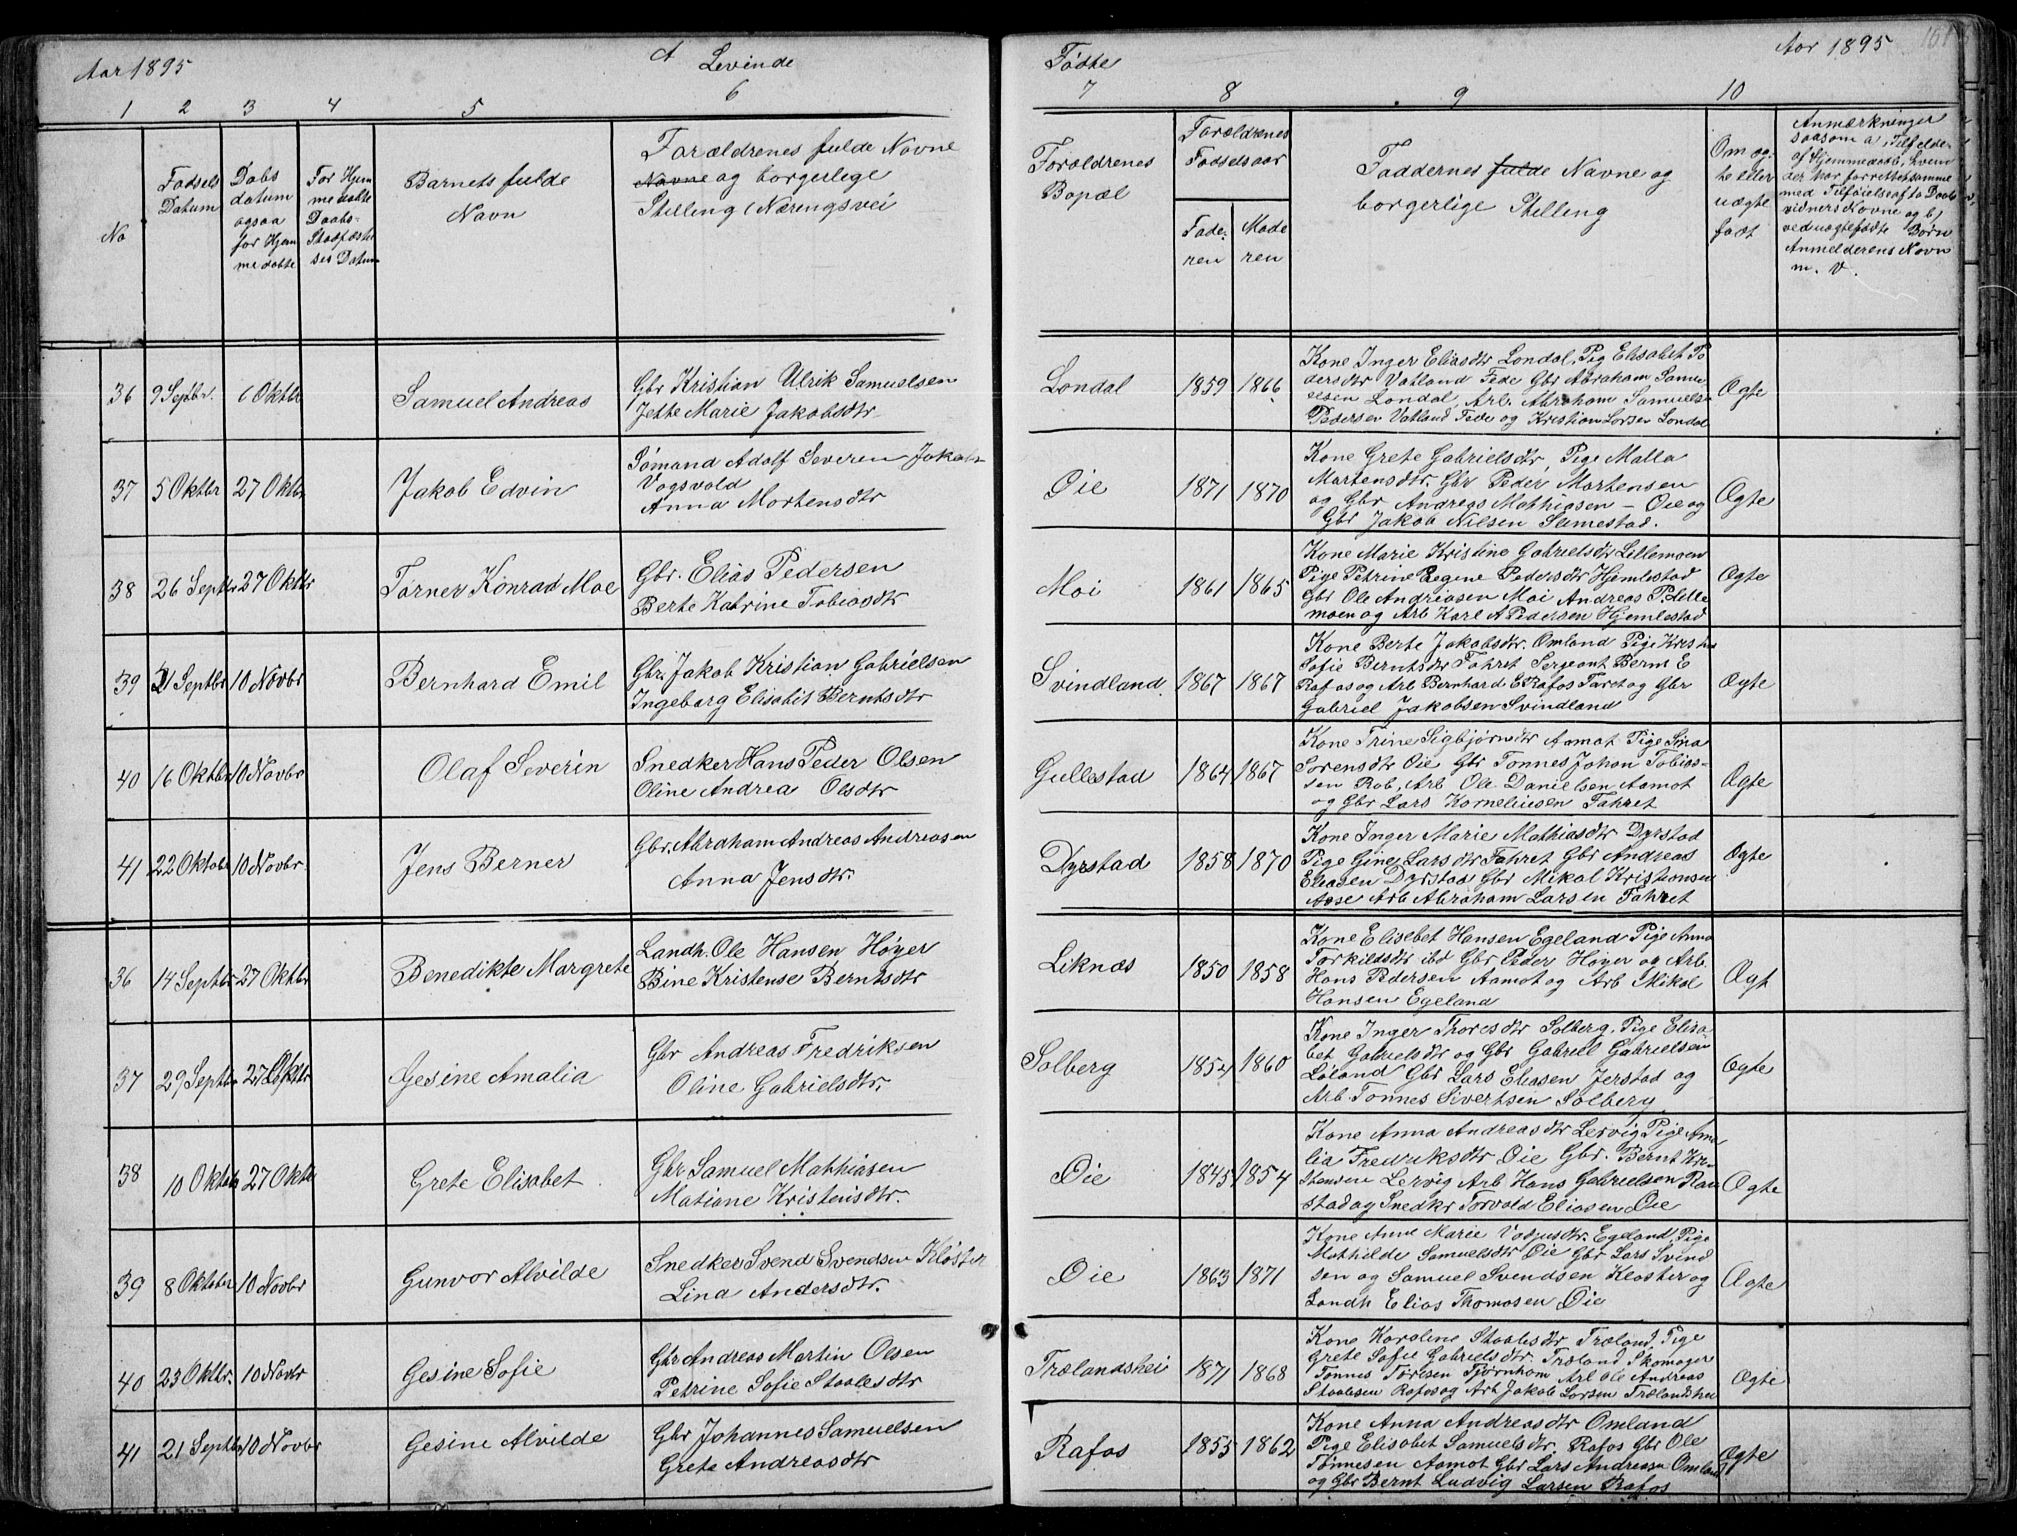 Aar 1895
A Levende
1 2 3 4 5 6
No
Fødsels Datum
Daabs datum ogsaa for Hjem medøbte
For Hjem medøbte Daabs- Stadfæstel ses Datum
Barnets fulde Navn
Forældrenes fulde Navne og borgerlige Stilling (Næringsvei
36 9 Septbr. 6 Oktbr Samuel Andreas
Gbr Kristian Ulrik Samuelsen
Jette Marie Jakobsdtr
37 5 Oktbr 27 Oktbr Jakob Edvin
Sømand Adolf Severen Jakobs
Vogsvold
Anna Mortensdtr
38 26 Septbr 27 Oktbr Tørner Konrad Moe
Gbr. Elias Pedersen
Berte Katrine Tobiasdtr
39 21 Septbr 10 Novbr Bernhard Emil
Gbr. Jakob Kristian Gabrielsen
Ingeborg Elisabet Berntsdtr
40 16 Oktbr 10 Novbr Olaf Severin
Snedker Hans Peder Olsen
Oline Andrea Olsdtr
41 22 Oktobr 10 Novbr Jens Berner
Gbr. Abraham Andreas Andreasen
Anna Jensdtr.
36 14 Septbr 27 Oktbr Benedikte Margrete
Landh. Ole Hansen Høyer
Bine Kristense Berntsdtr
37 29 Septbr 27 Oktbr Gesine Amalia
Gbr Andreas Fredriksen
Oline Gabrielsdtr.
38 10 Oktbr 27 Oktbr Grete Elisabet
Gbr Samuel Mathiasen
Matiane Kristensdtr.
39 8 Oktobr 10 Novbr Gunvor Alvilde
Snedker Svend Svendsen Kloster
Lina Andersdtr.
40 23 Oktbr. 10 Novbr Gesine Sofie
Gbr Andreas Martin Olsen
Petrine Sofie Staalesdtr
41 21 Septbr 10 Novbr Gesine Alvilde
Gbr Johannes Samuelsen
Grete Andreasdtr
Fødte
Aar 1895
7 8 9 10
Forældrenes Bopæl
Forældrenes Fødselsaar
Faderen Moderen
Faddernes fulde Navne og borgerlige Stilling
Om ægte eller uægte født
Anmærkninger saasom a) Tilfælde af Hjemmedaab, hvem der har forrettet samme med Tilføielse af to Daabsvidners Navne og b) ved uægtefødte Børn Anmelderens Navn m. v.
Londal 1859 1866
Kone Inger Eliasdtr Londal, Pig Elisabet Pe
dersdtr Vatland Fede Gbr Abraham Samu-
elsen Londal, Arb. Abraham Samuels.
Pedersen Vatland Fede og Kristian Larsen Londal
Ægte
Øie 1871 1870
Kone Grete Gabrielsdtr, Pige Malla
Martensdtr. Gbr Peder Martensen
og Gbr Andreas Mathiasen – Øie og
Gbr Jakob Nilsen Slimestad.
Ægte
Moi 1861 1865
Kone Marie Kristine Gabrielsdtr Lillemoen
Pige Petrine Regine Pedersdtr Hjemlestad
Gbr Ole Andreasen Moi Andreas P. Lille
moen og Arb Karl A Pedersen Hjemlestad
Ægte
Svindland 1867 1867
Kone Berte Jakobsdtr. Omland Pige
Sofie Berntsdtr Fahret Sergeant Bernt E
Rafos og Arb Bernhard E Rafos Faret og Gbr
Gabriel Jakobsen Svindland
Ægte
Gullestad 1864 1867
Kone Trine Sigbjørnsdtr Aamot Pige Sina
Sorensdtr Øie Gbr Tonnes Johan Tobias-
sen Rob, Arb Ole Danielsen Aamot
og Gbr Lars Korneliusen Fahret
Ægte
Dyrstad 1858 1870
Kone Inger Marie Mathiasdtr Dyrstad
Pige Gine Larsdtr Fahret Gbr Andreas
Eliasen Dyrstad Gbr Mikal Kristiansen
Aase Arb Abraham Larsen Fahret
Ægte
Liknæs 1850 1858
Kone Elisebet Hansen Egeland Pige Anna
Torkildsdtr ibd Gbr Peder Høyer og Arb.
Hans Pedersen Aamot og Arb Mikal
Hansen Egeland
Ægt
Solberg 1854 1860
Kone Inger Thoresdtr Solberg. Pige Elisa
bet Gabrielsdtr og Gbr Gabriel Gabrielsen
Løland Gbr Lars Eliasen Jerstad og
Arb. Tonnes Sivertsen Solberg
Ægte
Øie 1845 1854
Kone Anna Andreasdtr Lervig Pige Ama
lia Fredriksdtr Øie Gbr. Bernt Kri
stensen Lervig Arb Hans Gabrielsen Rau
stad og Snedkr Torvald Eliasen Øie
Ægte
Øie 1863 1871
Kone Anne Marie Egeland, Pige
Mathilde Samuelsdtr Øie Gbr Lars Svend
sen og Samuel Svendsen Kloster og
Landh Elias Thomasen Øie
Ægte
Trælandshei 1871 1868
Kone Karoline Staalesdtr Træland. Pige
Grete Sofie Gabrielsdtr. Træland Skomager
Tønnes Toresen Tjørnhom Arb Ole Andreas
Staalesen Rafos og Arb Jakob Larsen Trælandshei
Ægte
Rafos 1855 1862
Kone Anna Andreasdtr Omland
Pige Elisabet Samuelsdtr. Rafos Gbr Ole
Tønnesen Aamot Gbr Lars Andreasen Omland
og Gbr Bernt Ludvig Larsen Rafos
Ægte